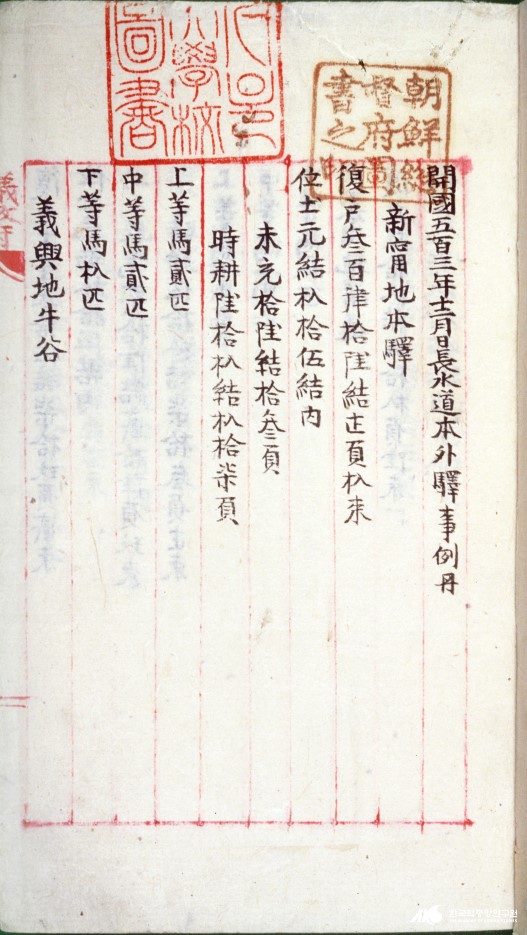 開國五百三年十二月日長水道本外驛事例冊
新寧地本驛
復戶叁百肆拾陸結
負玐束
位土元結玐拾伍結內
未充拾陸結拾叁負
時耕陸拾玐結玐拾柒負
上等馬貳匹
中等馬貳匹
下等馬玐匹
義興地牛谷
朝鮮總督府圖書之印
大學校圖書